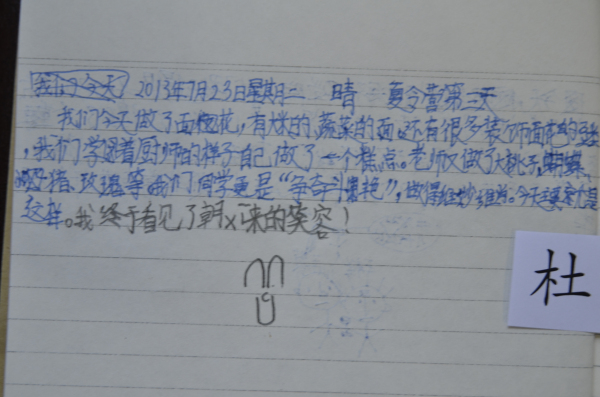 我们今天 2013年7月23日星期二 晴 夏令营第三天
我们今天做了面花,有米的、蔬菜的面,还有很多装饰面花的
,我们学着厨师的样子自己做了一个糕点。老师又做了大桃子,
猪、玫瑰等我们同学更是“争奇斗艳”,做得惟妙惟肖。今天
这样。我终于看见了朝 的笑容!
杜